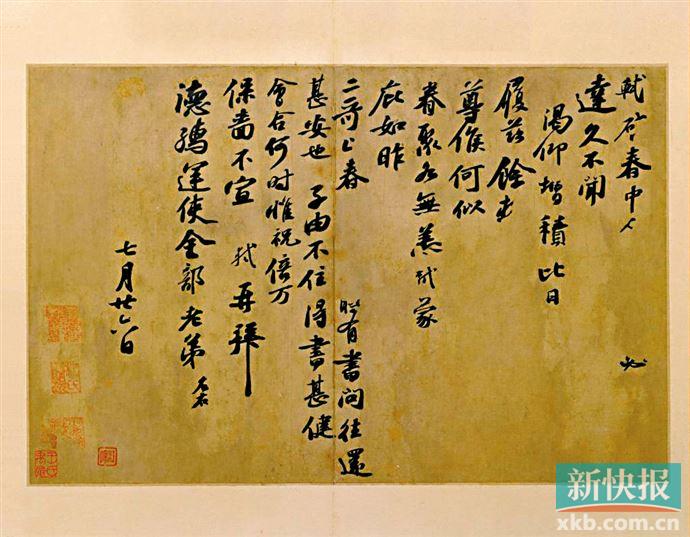 軾啓春中
必
達久不聞
渴仰增積比日
履茲餘
尊候何似
眷聚各無恙軾蒙
庇如昨
二哥上春 時有書問往還
甚安也 子由不住得書甚健
會合何時惟祝倍万
保嗇不宣 軾再拜
德孺運使金部老弟
七月廿六日
新快报
xkb.com.cn